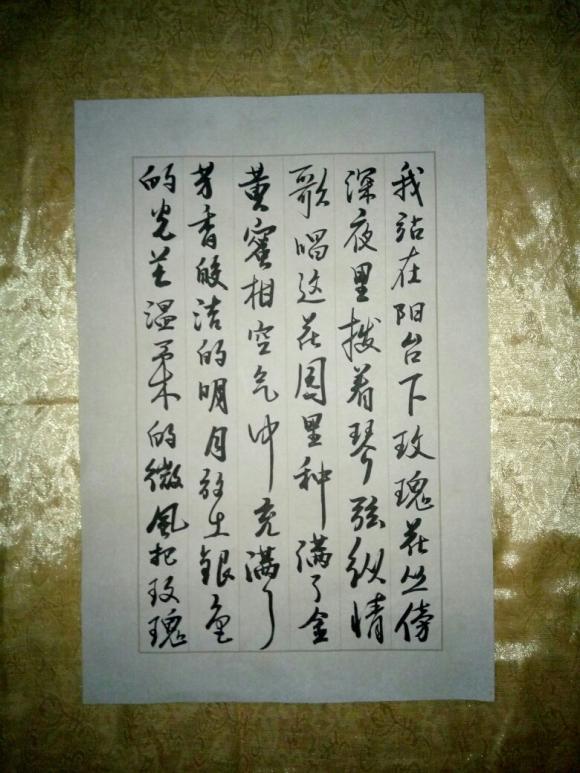 我站在阳台下玫瑰花丛傍
深夜里拨着琴弦纵情
歌唱这花园里种满了金
黄蜜柑空气中充满了
芳香皎洁的明月放土银色
的光芒温柔的微风把玫瑰